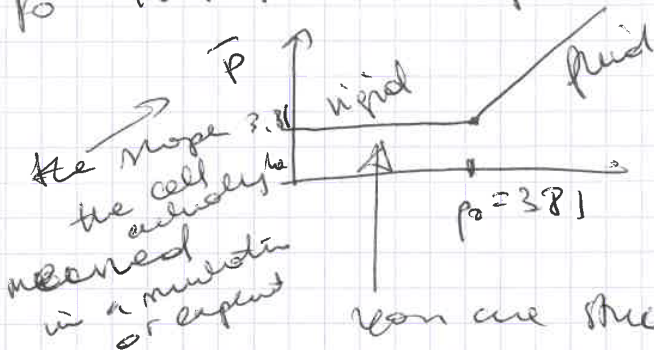 p̄
rigid
fluid
3.81
the shape
the cell
actually has
measured
in a simulation
or experiment
p₀ = 3.81
you are stuc